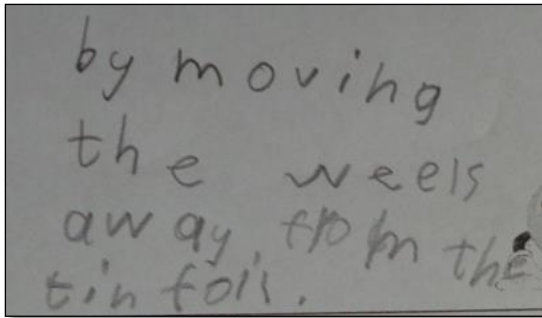 by moving
the weels
away, from the
tin foil.